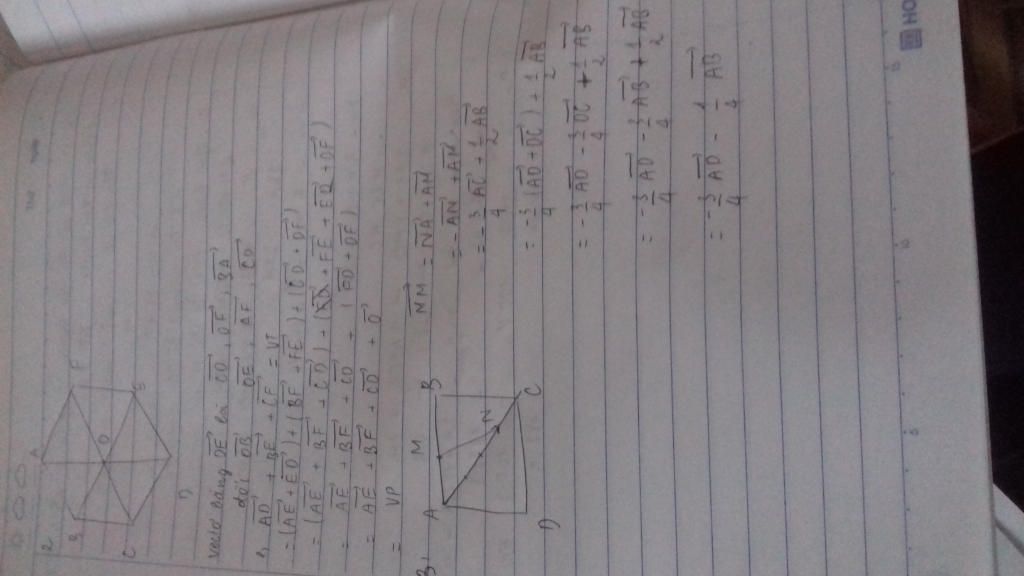 2
A
B
F
O
C
E
D
vectơ bằng \overrightarrow{OE} là: \overrightarrow{CD}, \overrightarrow{OF}, \overrightarrow{BA}
đối \overrightarrow{OB}, \overrightarrow{OE}, \overrightarrow{AF}, \overrightarrow{CD}
\overrightarrow{AD} + \overrightarrow{BE} + \overrightarrow{CF} = VT
= (\overrightarrow{AE} + \overrightarrow{ED}) + (\overrightarrow{BF} + \overrightarrow{FE}) + (\overrightarrow{CD} + \overrightarrow{DF})
= (\overrightarrow{AE} + \overrightarrow{BF} + \overrightarrow{CD}) + (\overrightarrow{FE} + \overrightarrow{ED} + \overrightarrow{DF})
= \overrightarrow{AE} + \overrightarrow{BF} + \overrightarrow{CD} + (\overrightarrow{FD} + \overrightarrow{DF})
= \overrightarrow{AE} + \overrightarrow{BF} + \overrightarrow{CD} + \overrightarrow{0}
= VP
B
A
M
B
N
D
C
\overrightarrow{NM} = \overrightarrow{NA} + \overrightarrow{AM}
= -\overrightarrow{AN} + \overrightarrow{AM}
= -\frac{3}{4}\overrightarrow{AC} + \frac{1}{2}\overrightarrow{AB}
= -\frac{3}{4}(\overrightarrow{AD} + \overrightarrow{DC}) + \frac{1}{2}\overrightarrow{AB}
= -\frac{3}{4}\overrightarrow{AD} - \frac{3}{4}\overrightarrow{DC} + \frac{1}{2}\overrightarrow{AB}
= -\frac{3}{4}\overrightarrow{AD} - \frac{3}{4}\overrightarrow{AB} + \frac{1}{2}\overrightarrow{AB}
= -\frac{3}{4}\overrightarrow{AD} - \frac{1}{4}\overrightarrow{AB}
HO